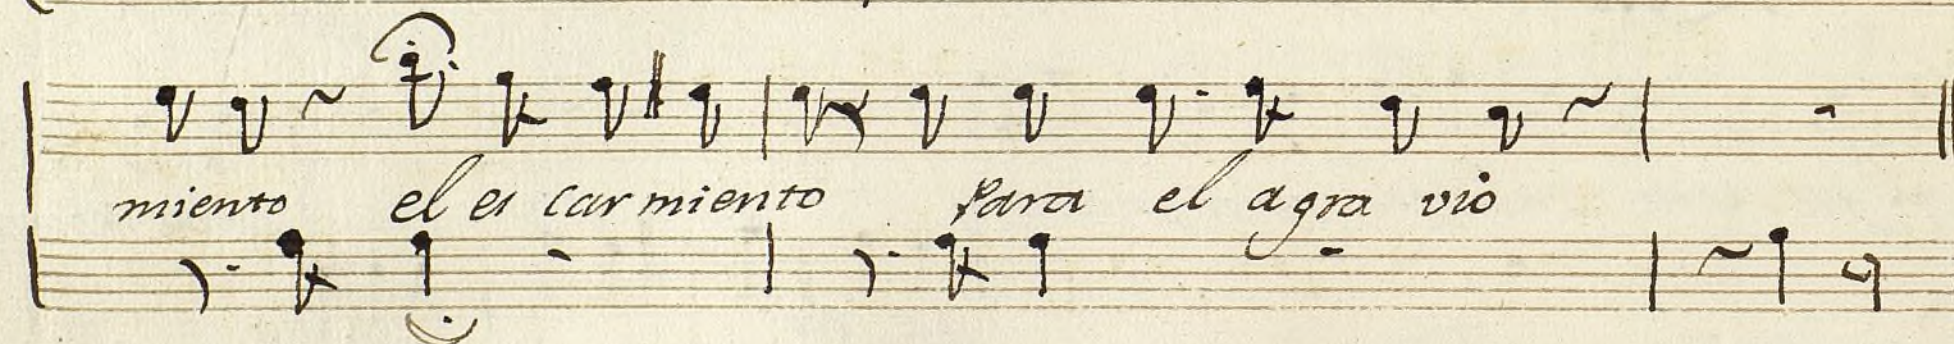 miento el es carmiento para el agra vio